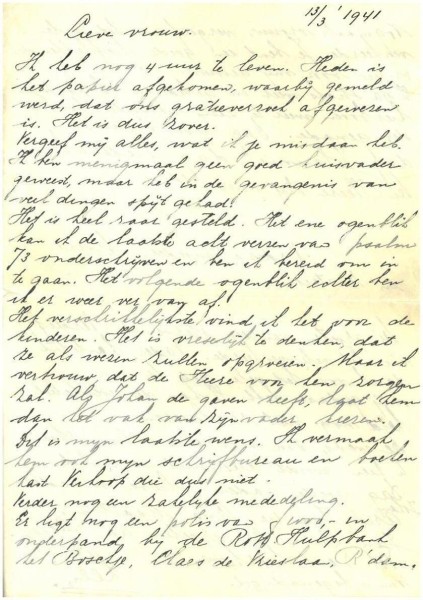 13/3 ' 1941
Lieve vrouw.
Ik heb nog 4 uur te leven. Heden is
het papier afgekomen, waarbij gemeld
werd, dat ons gratieverzoek afgewezen
is. Het is dus zover.
Vergeef mij alles, wat ik je misdaan heb.
Ik ben menigmaal geen goed huisvader
geweest, maar heb in de gevangenis van
veel dingen spijt gehad.
Het is heel raar gesteld. Het ene ogenblik
kan ik de laatste acht verzen van psalm
73 onderschrijven en ben ik bereid om in
te gaan. Het volgende ogenblik echter ben
ik er weer ver van af.
Het verschrikkelijkste vind ik het voor de
kinderen. Het is vreselijk te denken, dat
ze als wezen zullen opgroeien. Maar ik
vertrouw, dat de Heere voor hen zorgen
zal. Als Johan de gaven heeft, laat hem
dan het vak van zijn vader kiezen.
Dit is mijn laatste wens. Ik vermaak
hem ook mijn schrijfbureau en boeken
kast. Verkoop die dus niet.
Verder nog een zakelijke mededeling.
Er ligt nog een polis van 1000,- in
onderpand bij de Rott Hulpbank
het Bosctje, Claes de Vrieslaan, R'dam.